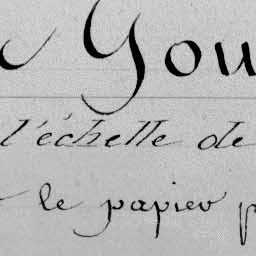 You
l'échelle de
le papier p